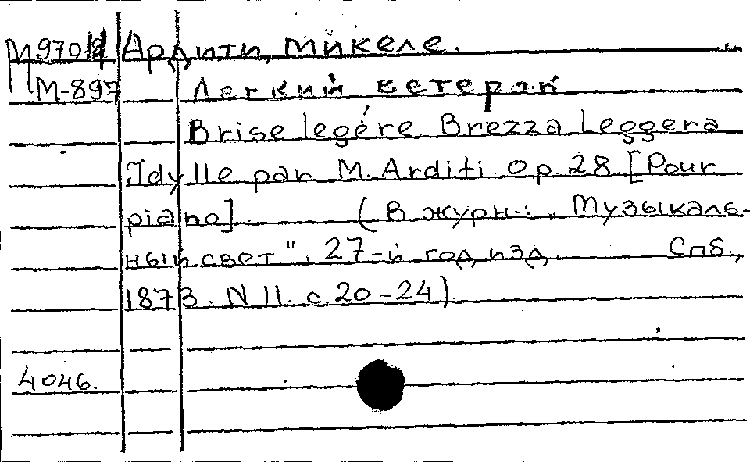 Ардити, Микеле.
М-897 Легкий ветерок
Brise legére Brezza Leggera
Idylle par M. Arditi Op 28 [Pour
piano] (В журн.: „Музыкаль-
ный свет", 27-й год изд Спб.,
1873. N 11. с 20-24)
4046.